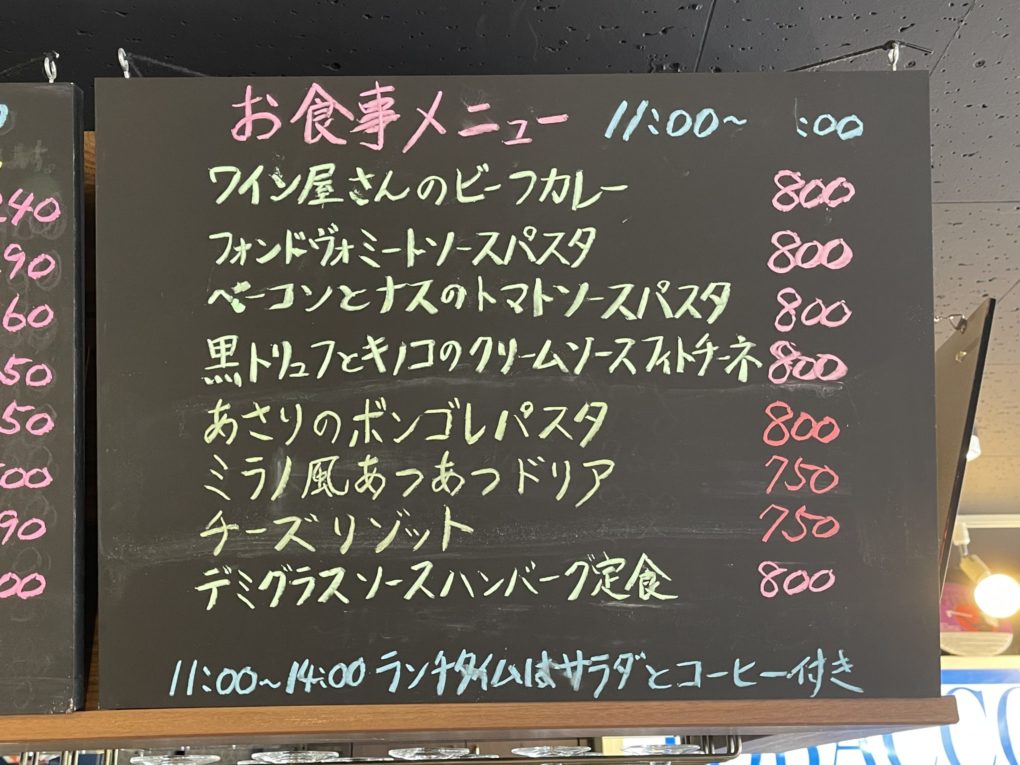 お食事メニュー 11:00~ :00
ワイン屋さんのビーフカレー 800
フォンドヴォミートソースパスタ 800
ベーコンとナスのトマトソースパスタ 800
黒トリュフとキノコのクリームソースフィトチーネ 800
あさりのボンゴレパスタ 800
ミラノ風あつあつドリア 750
チーズリゾット 750
デミグラスソースハンバーグ定食 800
11:00~14:00 ランチタイムはサラダとコーヒー付き
240
90
60
50
50
00
90
00